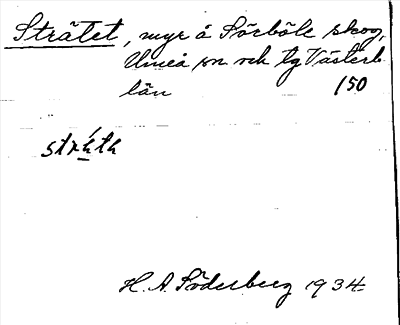 Strätet, myr å Sörböle skog,
Umeå sn och tg Västerb.
län 150
H. A. Söderberg 1934